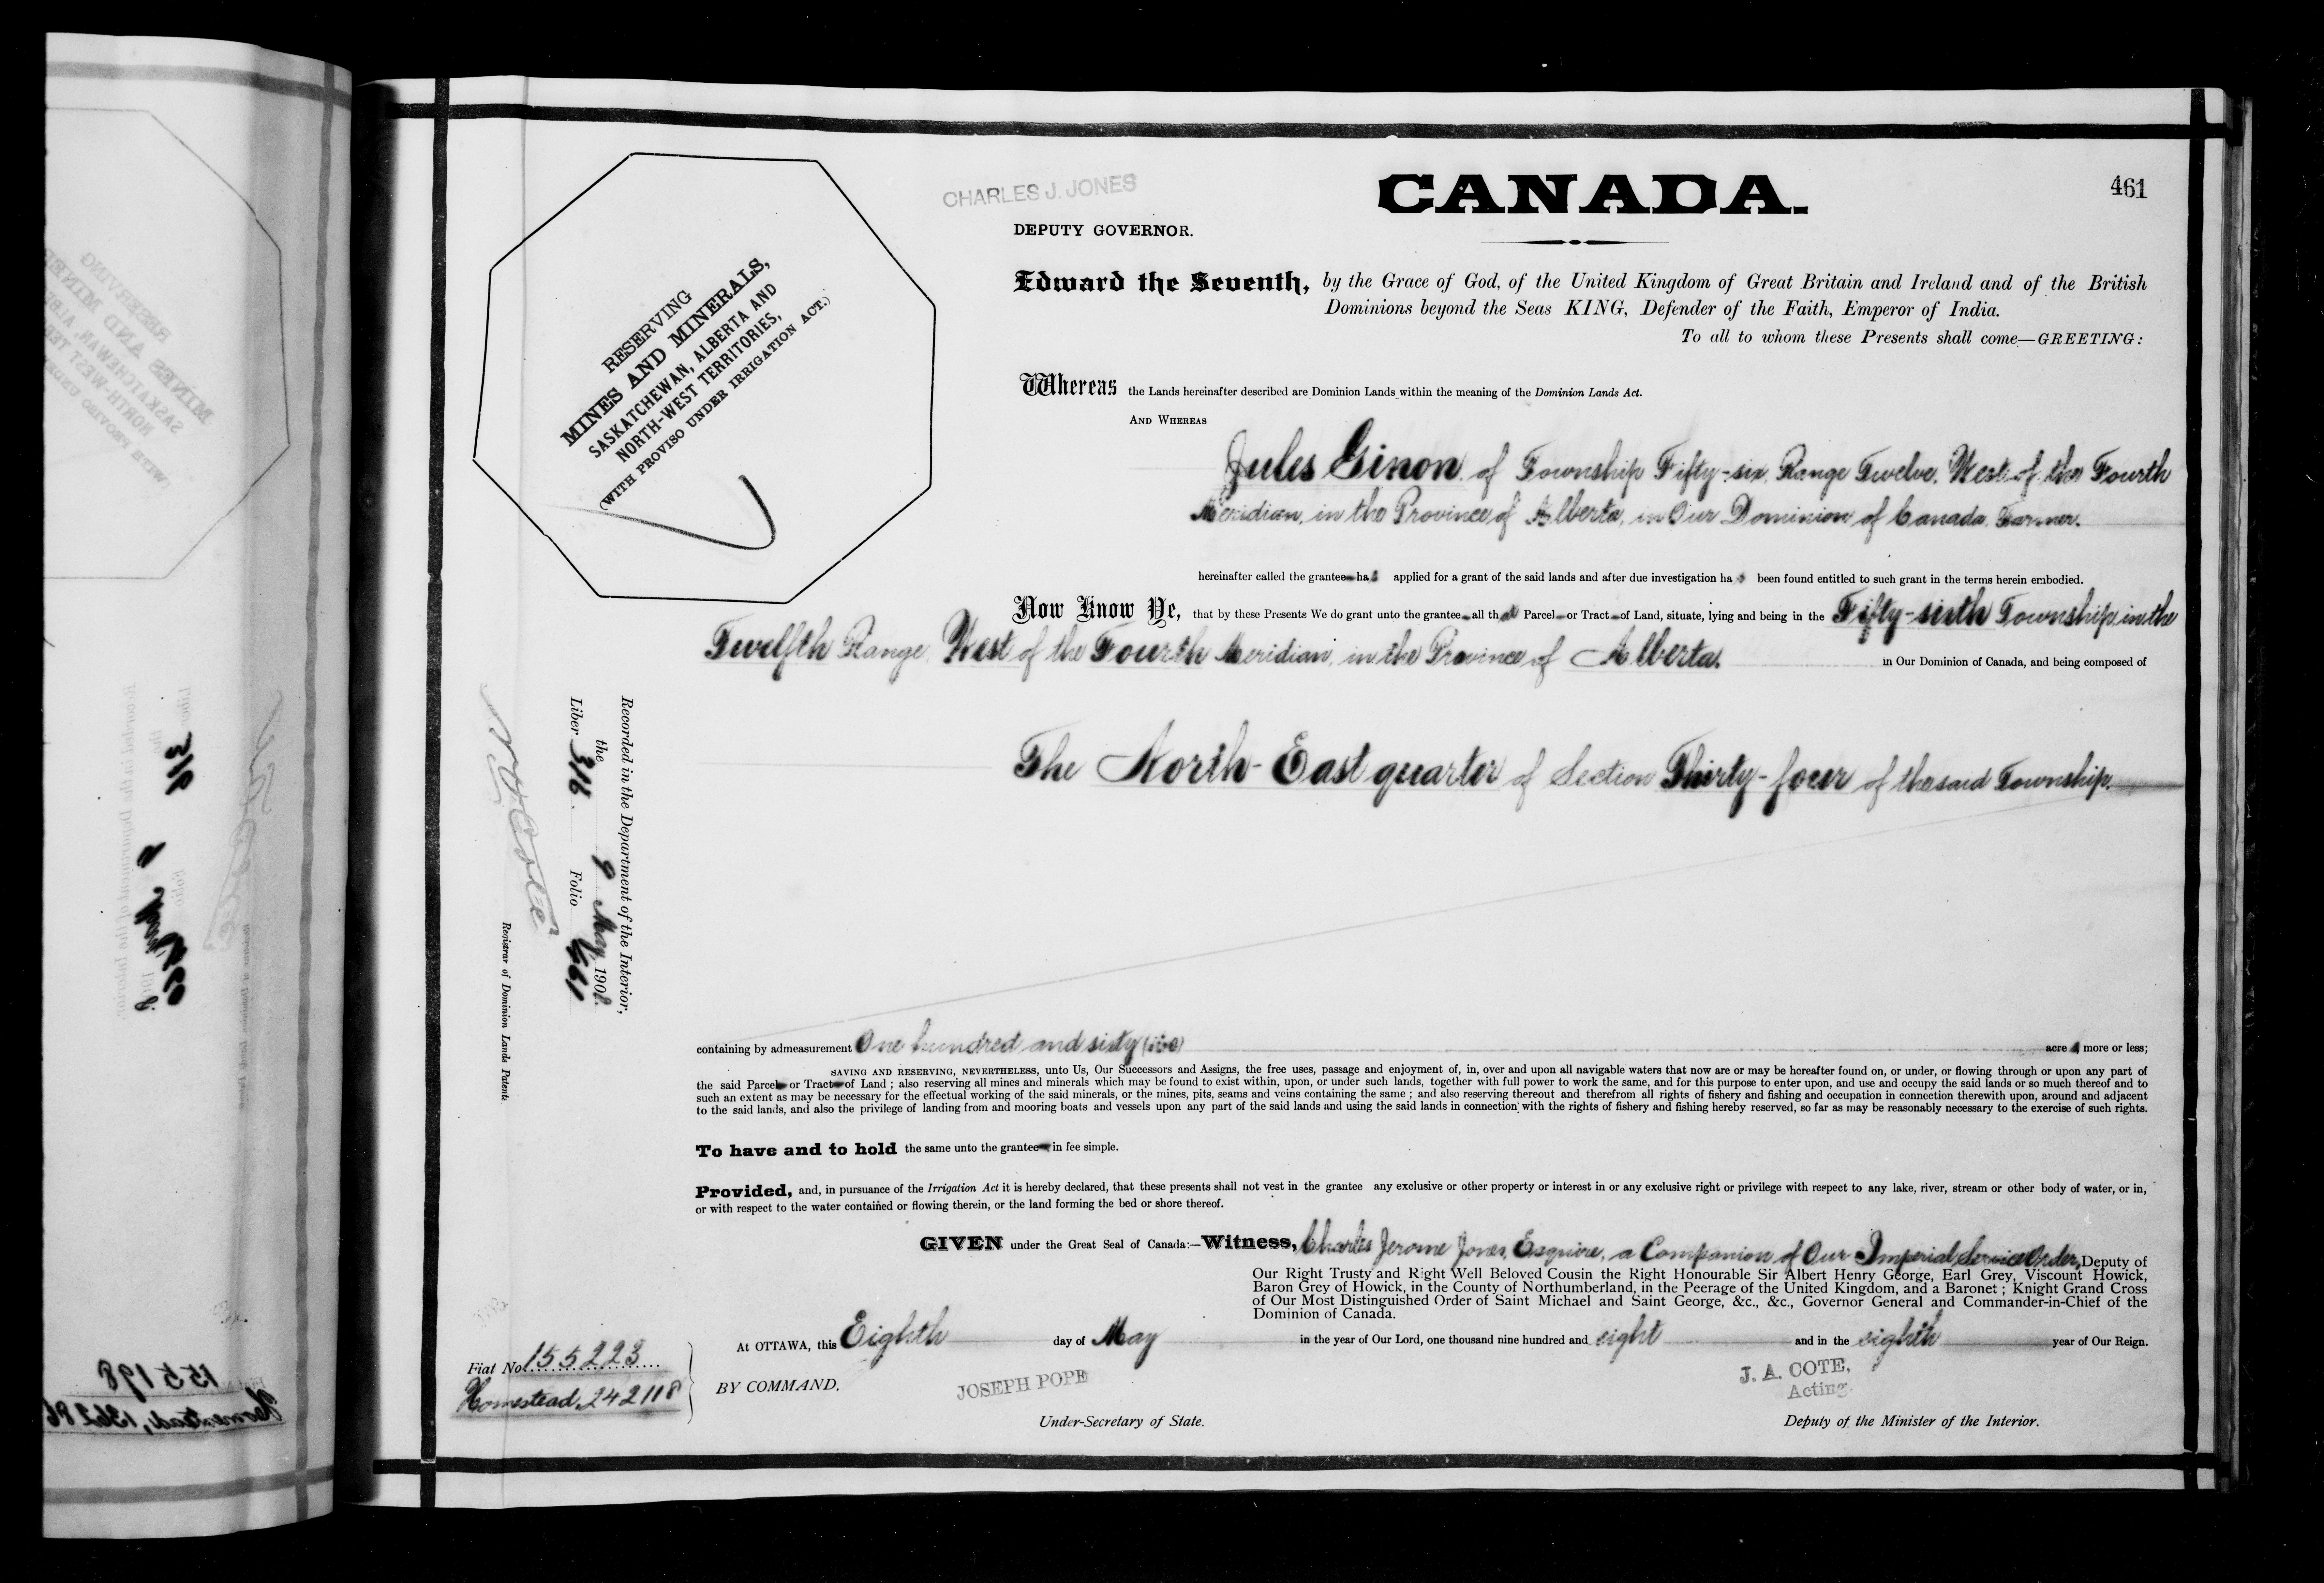 461
CHARLES J. JONES
CANADA.
DEPUTY GOVERNOR.
Edward the Seventh, by the Grace of God, of the United Kingdom of Great Britain and Ireland and of the British
Dominions beyond the Seas KING, Defender of the Faith, Emperor of India.
To all to whom these Presents shall come—GREETING:
RESERVING
MINES AND MINERALS,
SASKATCHEWAN, ALBERTA AND
NORTH-WEST TERRITORIES,
(WITH PROVISO UNDER IRRIGATION ACT.)
Whereas the Lands hereinafter described are Dominion Lands within the meaning of the Dominion Lands Act.
AND WHEREAS
Jules Ginon of Township Fifty-six, Range Twelve, West of the Fourth
Meridian, in the Province of Alberta, in Our Dominion of Canada, Farmer.
hereinafter called the grantee has applied for a grant of the said lands and after due investigation has been found entitled to such grant in the terms herein embodied.
Now Know Ye, that by these Presents We do grant unto the grantee all that Parcel or Tract of Land, situate, lying and being in the Fifty-sixth Township, in the
Twelfth Range, West of the Fourth Meridian, in the Province of Alberta, in Our Dominion of Canada, and being composed of
The North-East quarter of Section Thirty-four of the said Township.
Recorded in the Department of the Interior,
the 9 May 1908.
Liber 316. Folio 461
N. O. Coté
Registrar of Dominion Lands Patents.
containing by admeasurement One hundred and sixty (160) acres, more or less;
SAVING AND RESERVING, NEVERTHELESS, unto Us, Our Successors and Assigns, the free uses, passage and enjoyment of, in, over and upon all navigable waters that now are or may be hereafter found on, or under, or flowing through or upon any part of
the said Parcel or Tract of Land ; also reserving all mines and minerals which may be found to exist within, upon, or under such lands, together with full power to work the same, and for this purpose to enter upon, and use and occupy the said lands or so much thereof and to
such an extent as may be necessary for the effectual working of the said minerals, or the mines, pits, seams and veins containing the same ; and also reserving thereout and therefrom all rights of fishery and fishing and occupation in connection therewith upon, around and adjacent
to the said lands, and also the privilege of landing from and mooring boats and vessels upon any part of the said lands and using the said lands in connection with the rights of fishery and fishing hereby reserved, so far as may be reasonably necessary to the exercise of such rights.
To have and to hold the same unto the grantee in fee simple.
Provided, and, in pursuance of the Irrigation Act it is hereby declared, that these presents shall not vest in the grantee any exclusive or other property or interest in or any exclusive right or privilege with respect to any lake, river, stream or other body of water, or in,
or with respect to the water contained or flowing therein, or the land forming the bed or shore thereof.
GIVEN under the Great Seal of Canada:—Witness, Charles Jerome Jones, Esquire, a Companion of Our Imperial Service Order, Deputy of
Our Right Trusty and Right Well Beloved Cousin the Right Honourable Sir Albert Henry George, Earl Grey, Viscount Howick,
Baron Grey of Howick, in the County of Northumberland, in the Peerage of the United Kingdom, and a Baronet ; Knight Grand Cross
of Our Most Distinguished Order of Saint Michael and Saint George, &c., &c., Governor General and Commander-in-Chief of the
Dominion of Canada.
At OTTAWA, this Eighth day of May in the year of Our Lord, one thousand nine hundred and eight and in the eighth year of Our Reign.
Fiat No. 155223
Homestead, 242118
BY COMMAND,
JOSEPH POPE
Under-Secretary of State.
J. A. COTE,
Acting
Deputy of the Minister of the Interior.